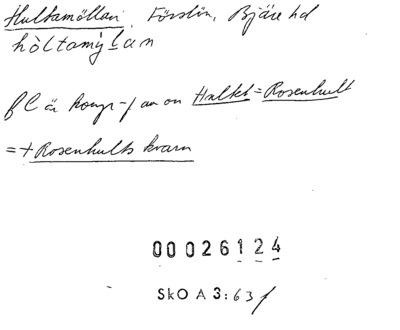 Hultamöllan, Förslöv, Bjäre hd
hòltamỳlan
fl är kompr-f av on Hultet = Rosenhult
= + Rosenhults kvarn
00026124
SkO A 3:63